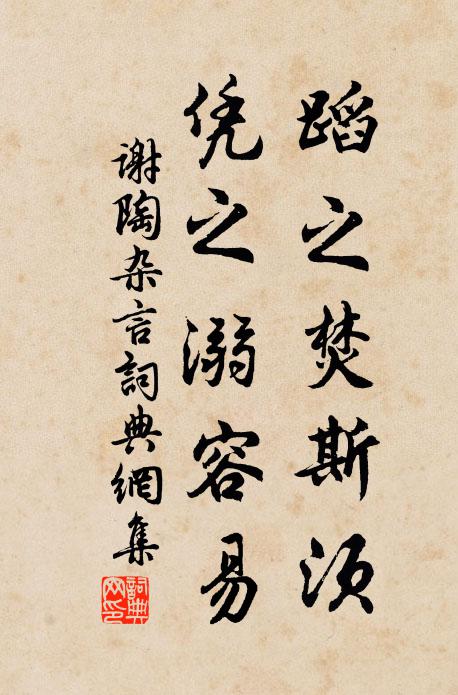 蹈之焚斯须
凭之溺容易
谢陶杂言詞典網集
詞典網印